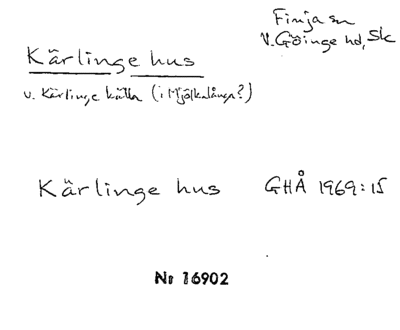 Finja sn
V. Göinge hd, Sk
Kärlinge hus
v. Kärlinge källa (i Mjölkalånga?)
Kärlinge hus GHÅ 1969:15
Nr 16902